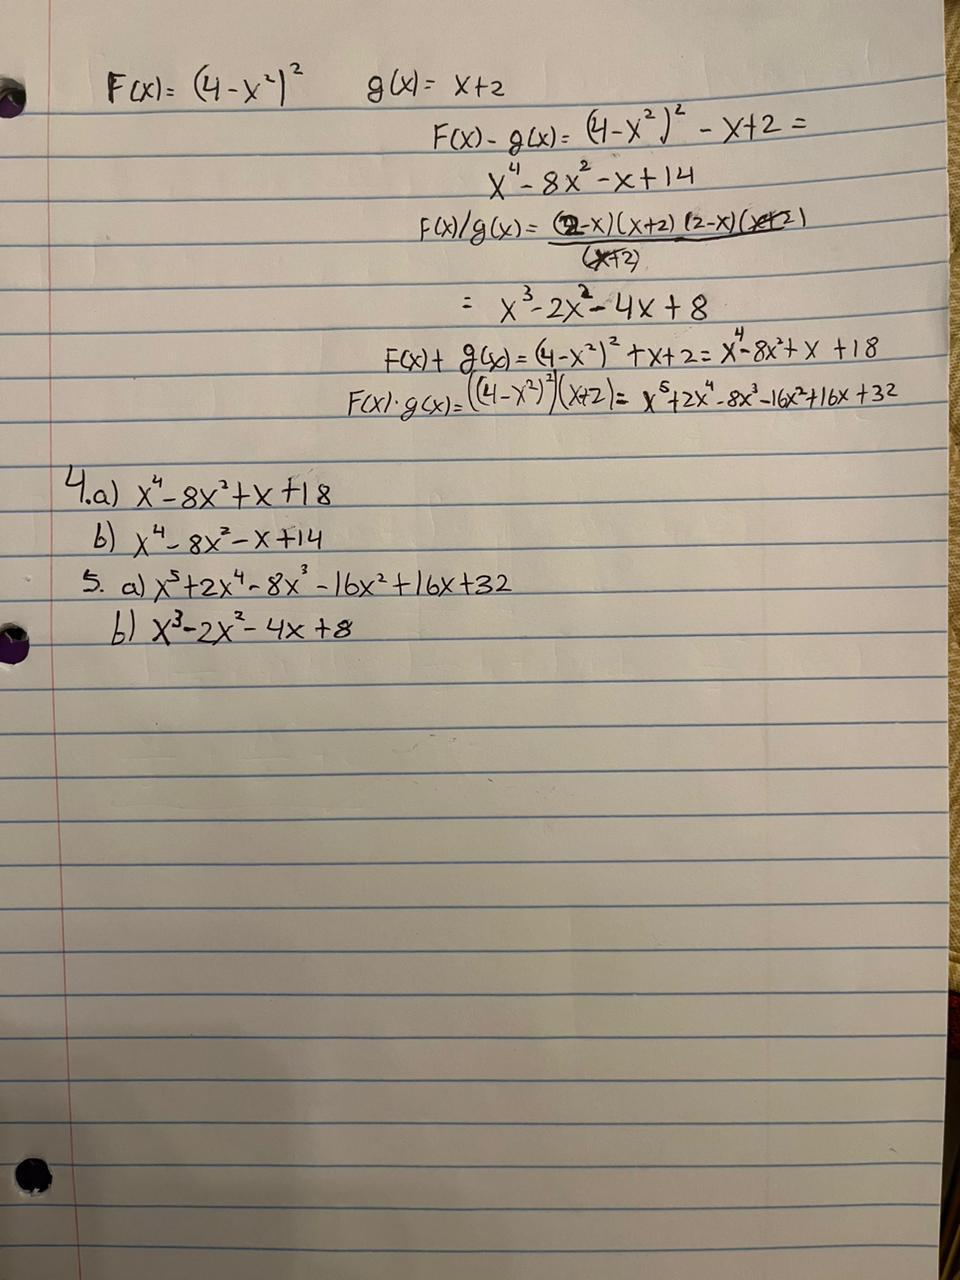 F(x)= (4-x²)² g(x)= x+2
F(x)- g(x)= (4-x²)² - x+2 =
x⁴- 8x² -x +14
F(x)/g(x)= (2-x)(x+2)(2-x)(x+2)
(x+2)
= x³-2x²- 4x + 8
F(x)+ g(x)= (4-x²)² +x+2= x⁴-8x²+ x +18
F(x)·g(x)= ((4-x²)²)(x+2)= x⁵+2x⁴-8x³-16x²+16x+32
4.a) x⁴-8x²+x+18
b) x⁴-8x²-x+14
5. a) x⁵+2x⁴-8x³-16x²+16x+32
b) x³-2x²-4x+8